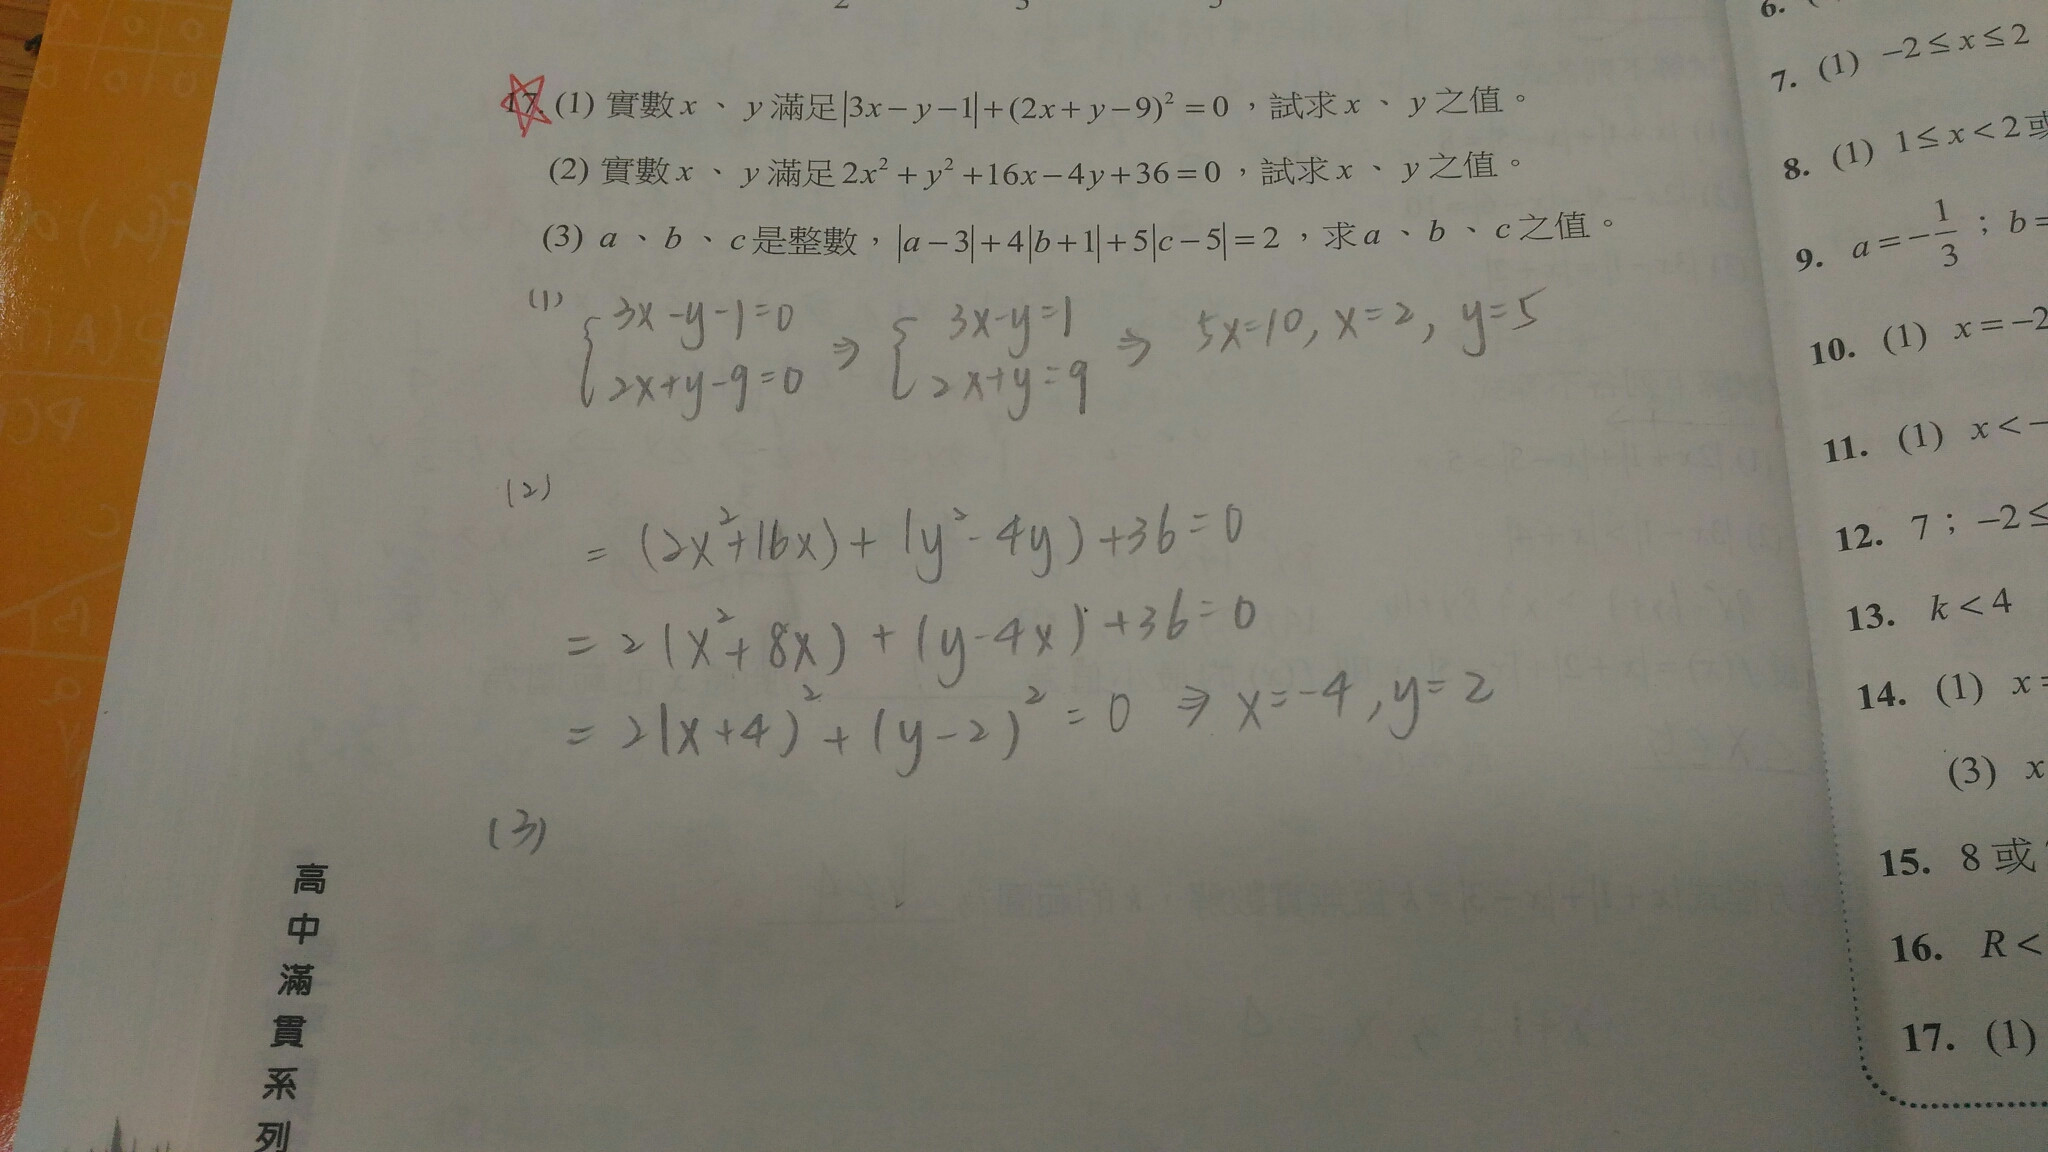 17. (1) 實數 x 、 y 滿足 |3x − y − 1| + (2x + y − 9)² = 0 ,試求 x 、 y 之值。
(2) 實數 x 、 y 滿足 2x² + y² + 16x − 4y + 36 = 0 ,試求 x 、 y 之值。
(3) a 、 b 、 c 是整數, |a − 3| + 4|b + 1| + 5|c − 5| = 2 ,求 a 、 b 、 c 之值。
(1) { 3x-y-1=0 ⇒ { 3x-y=1 ⇒ 5x=10, x=2, y=5
2x+y-9=0 2x+y=9
(2)
= (2x²+16x)+(y²-4y)+36=0
= 2(x²+8x)+(y-4x)+36=0
= 2(x+4)²+(y-2)²=0 ⇒ x=-4, y=2
(3)
高中滿貫系列
6.
7. (1) −2 ≤ x ≤ 2
8. (1) 1 ≤ x < 2 或
9. a = −1/3 ; b =
10. (1) x = −2
11. (1) x < −
12. 7 ; −2 ≤
13. k < 4
14. (1) x =
(3) x
15. 8 或
16. R <
17. (1)